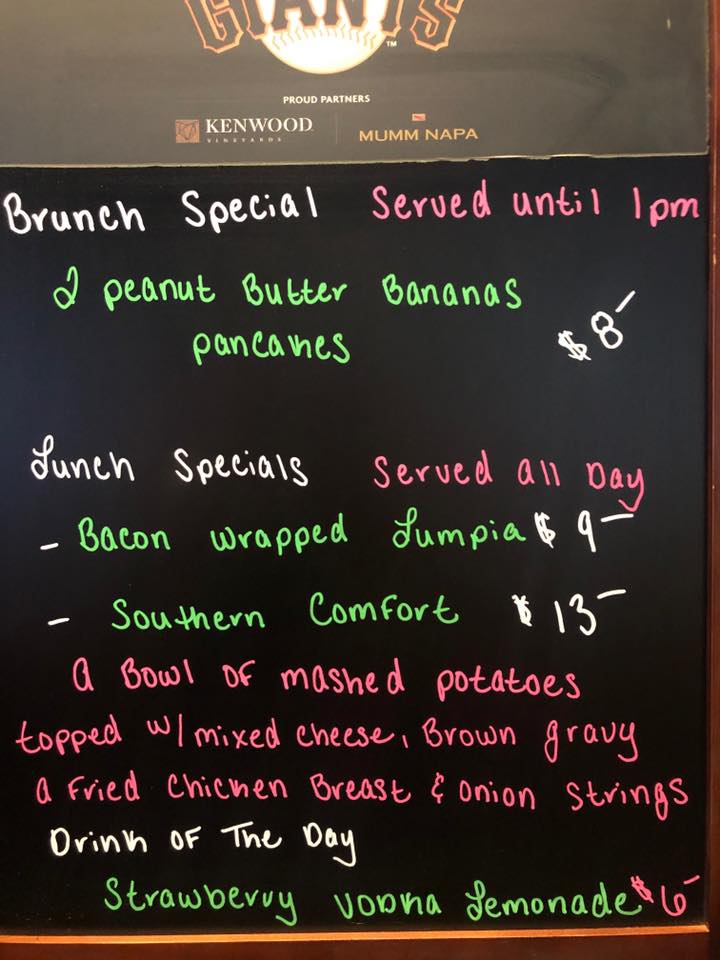 GIANTS
TM
PROUD PARTNERS
KENWOOD
VINEYARDS
MUMM NAPA
Brunch Special Served until 1pm
2 peanut Butter Bananas
pancakes $8-
Lunch Specials Served all Day
- Bacon wrapped Lumpia $9-
- Southern Comfort $13-
a Bowl of mashed potatoes
topped w/mixed cheese, Brown gravy
a Fried Chicken Breast & onion strings
Drink of The Day
Strawberry vodka Lemonade $6-